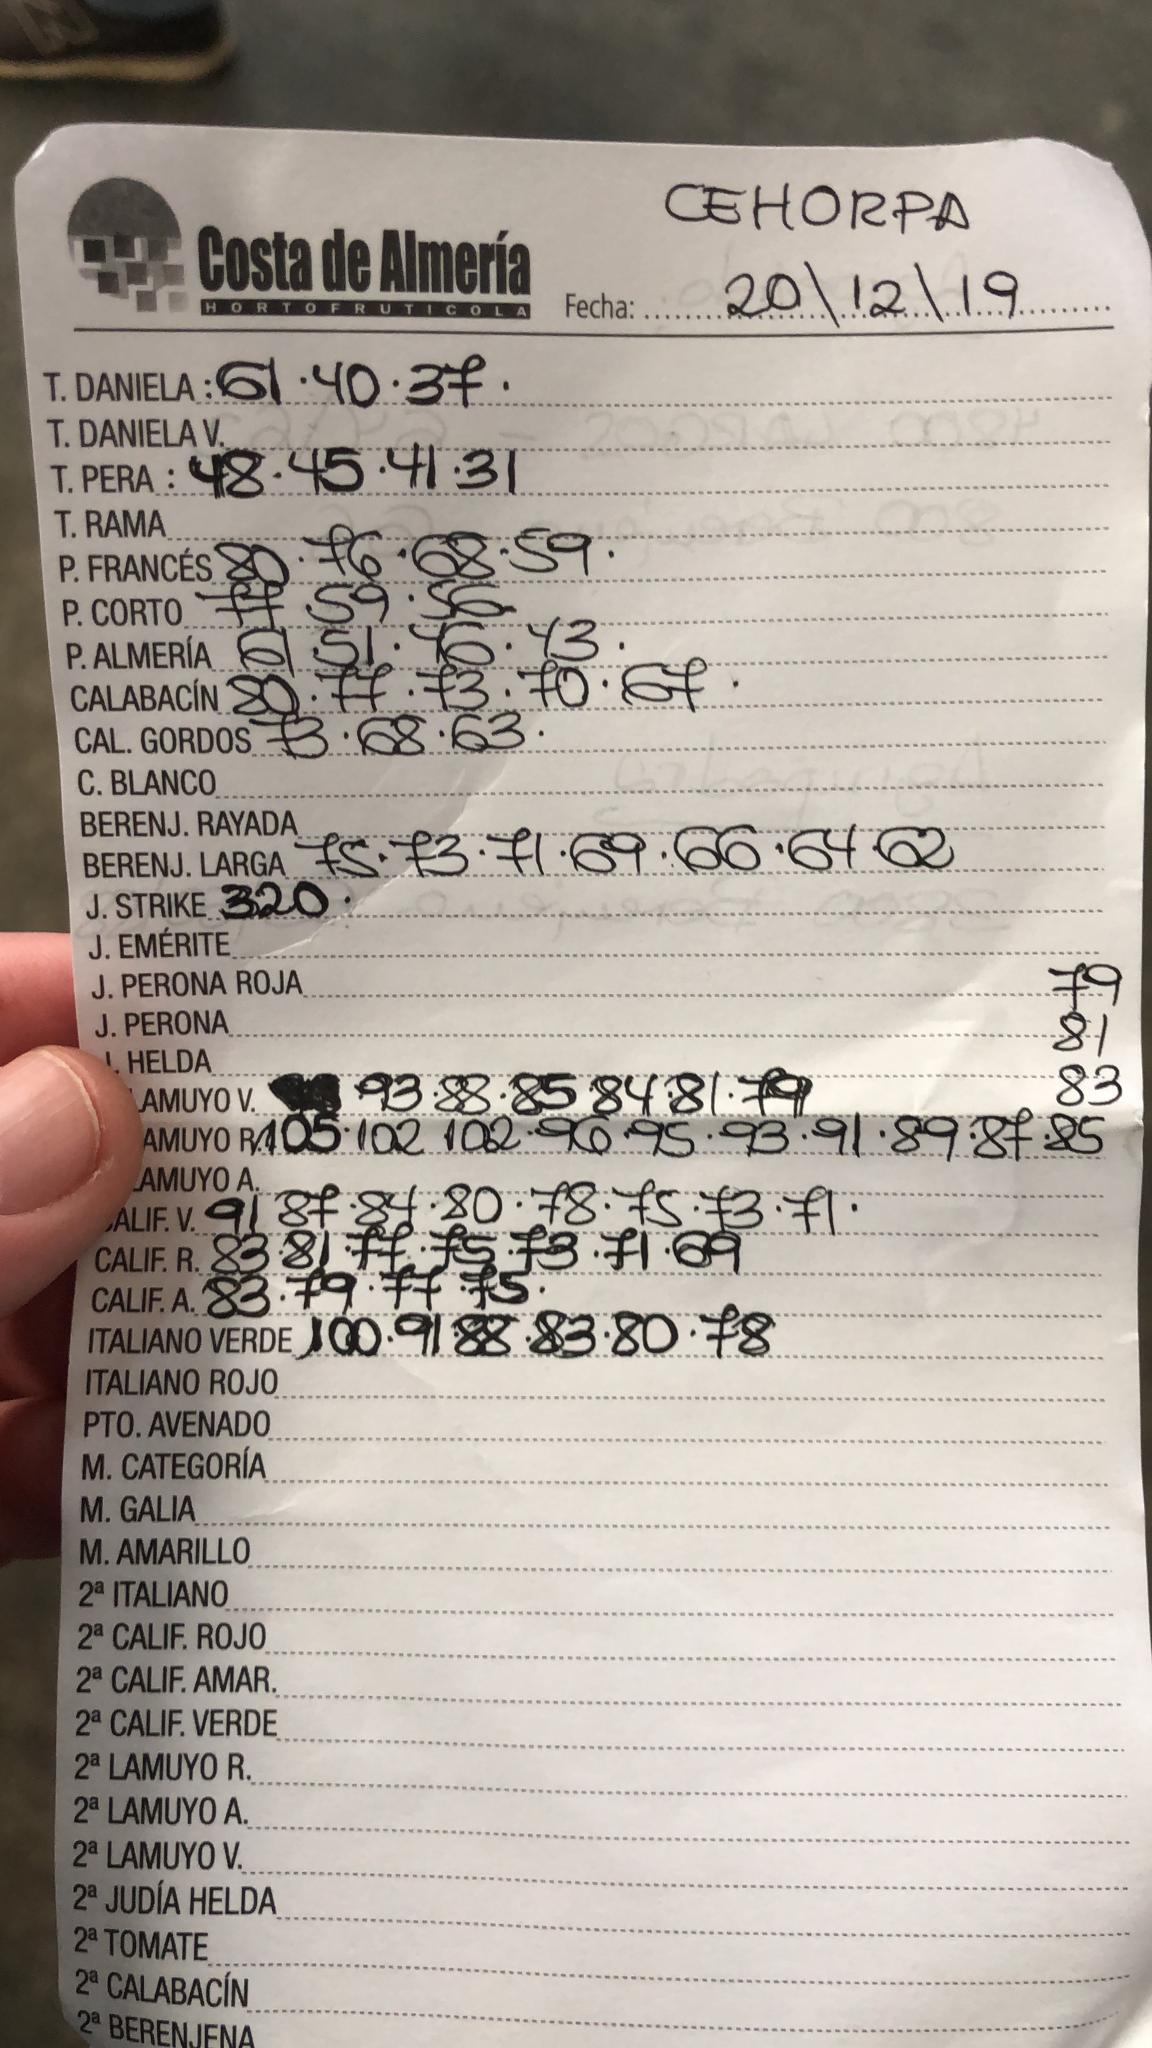 CEHORPA
Costa de Almería
HORTOFRUTICOLA
Fecha: 20\12\19
T. DANIELA : 61 · 40 · 37 ·
T. DANIELA V.
T. PERA : 48 · 45 · 41 · 31
T. RAMA
P. FRANCÉS 80 · 76 · 68 · 59 ·
P. CORTO 77 59 · 56
P. ALMERÍA 61 51 · 46 · 43 ·
CALABACÍN 80 · 77 · 73 · 70 · 67 ·
CAL. GORDOS 73 · 68 · 63 ·
C. BLANCO
BERENJ. RAYADA
BERENJ. LARGA 75 · 73 · 71 · 69 · 66 · 64 · 62
J. STRIKE 320 ·
J. EMÉRITE
J. PERONA ROJA 79
J. PERONA 81
J. HELDA 83
LAMUYO V. 93 · 88 · 85 · 84 · 81 · 79
LAMUYO R. 105 · 102 102 · 96 · 95 · 93 · 91 · 89 · 87 · 85
LAMUYO A.
CALIF. V. 91 87 · 84 · 80 · 78 · 75 · 73 · 71 ·
CALIF. R. 83 · 81 · 77 · 75 · 73 · 71 · 69
CALIF. A. 83 · 79 · 77 · 75 ·
ITALIANO VERDE 100 · 91 88 · 83 · 80 · 78
ITALIANO ROJO
PTO. AVENADO
M. CATEGORÍA
M. GALIA
M. AMARILLO
2ª ITALIANO
2ª CALIF. ROJO
2ª CALIF. AMAR.
2ª CALIF. VERDE
2ª LAMUYO R.
2ª LAMUYO A.
2ª LAMUYO V.
2ª JUDÍA HELDA
2ª TOMATE
2ª CALABACÍN
2ª BERENJENA